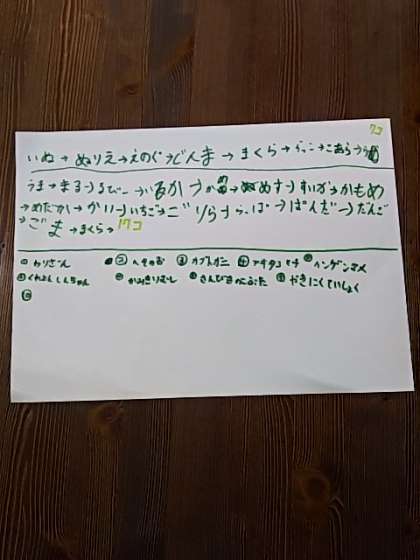 7コ
いぬ→ぬりえ→えのぐ→じんま→まくら→らっこ→こあら→
うま→まる→るびー→いるか→かめ→めす→すいか→かもめ
→めだか→かい→いちご→ごりら→らっぱ→ぱんだ→だんご
→ごま→まくら→17コ
わりざん ② へそのお ③ カブトガニ ④ アキタコマチ インゲンマメ
くれよんしんちゃん かみきりむし さんびきのこぶた やきにくていしょく